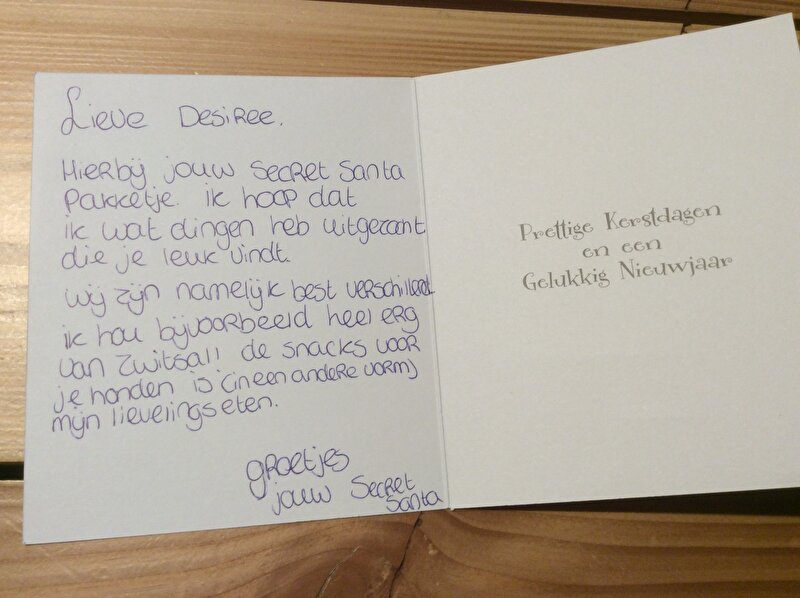 Lieve Desiree.
Hierbij jouw Secret Santa
pakketje. ik hoop dat
ik wat dingen heb uitgezocht
die je leuk vindt.
wij zijn namelijk best verschillend
ik hou bijvoorbeeld heel erg
van zwitsal! de snacks voor
je honden is (in een andere vorm)
mijn lievelingseten.
groetjes
jouw Secret
Santa
Prettige Kerstdagen
en een
Gelukkig Nieuwjaar